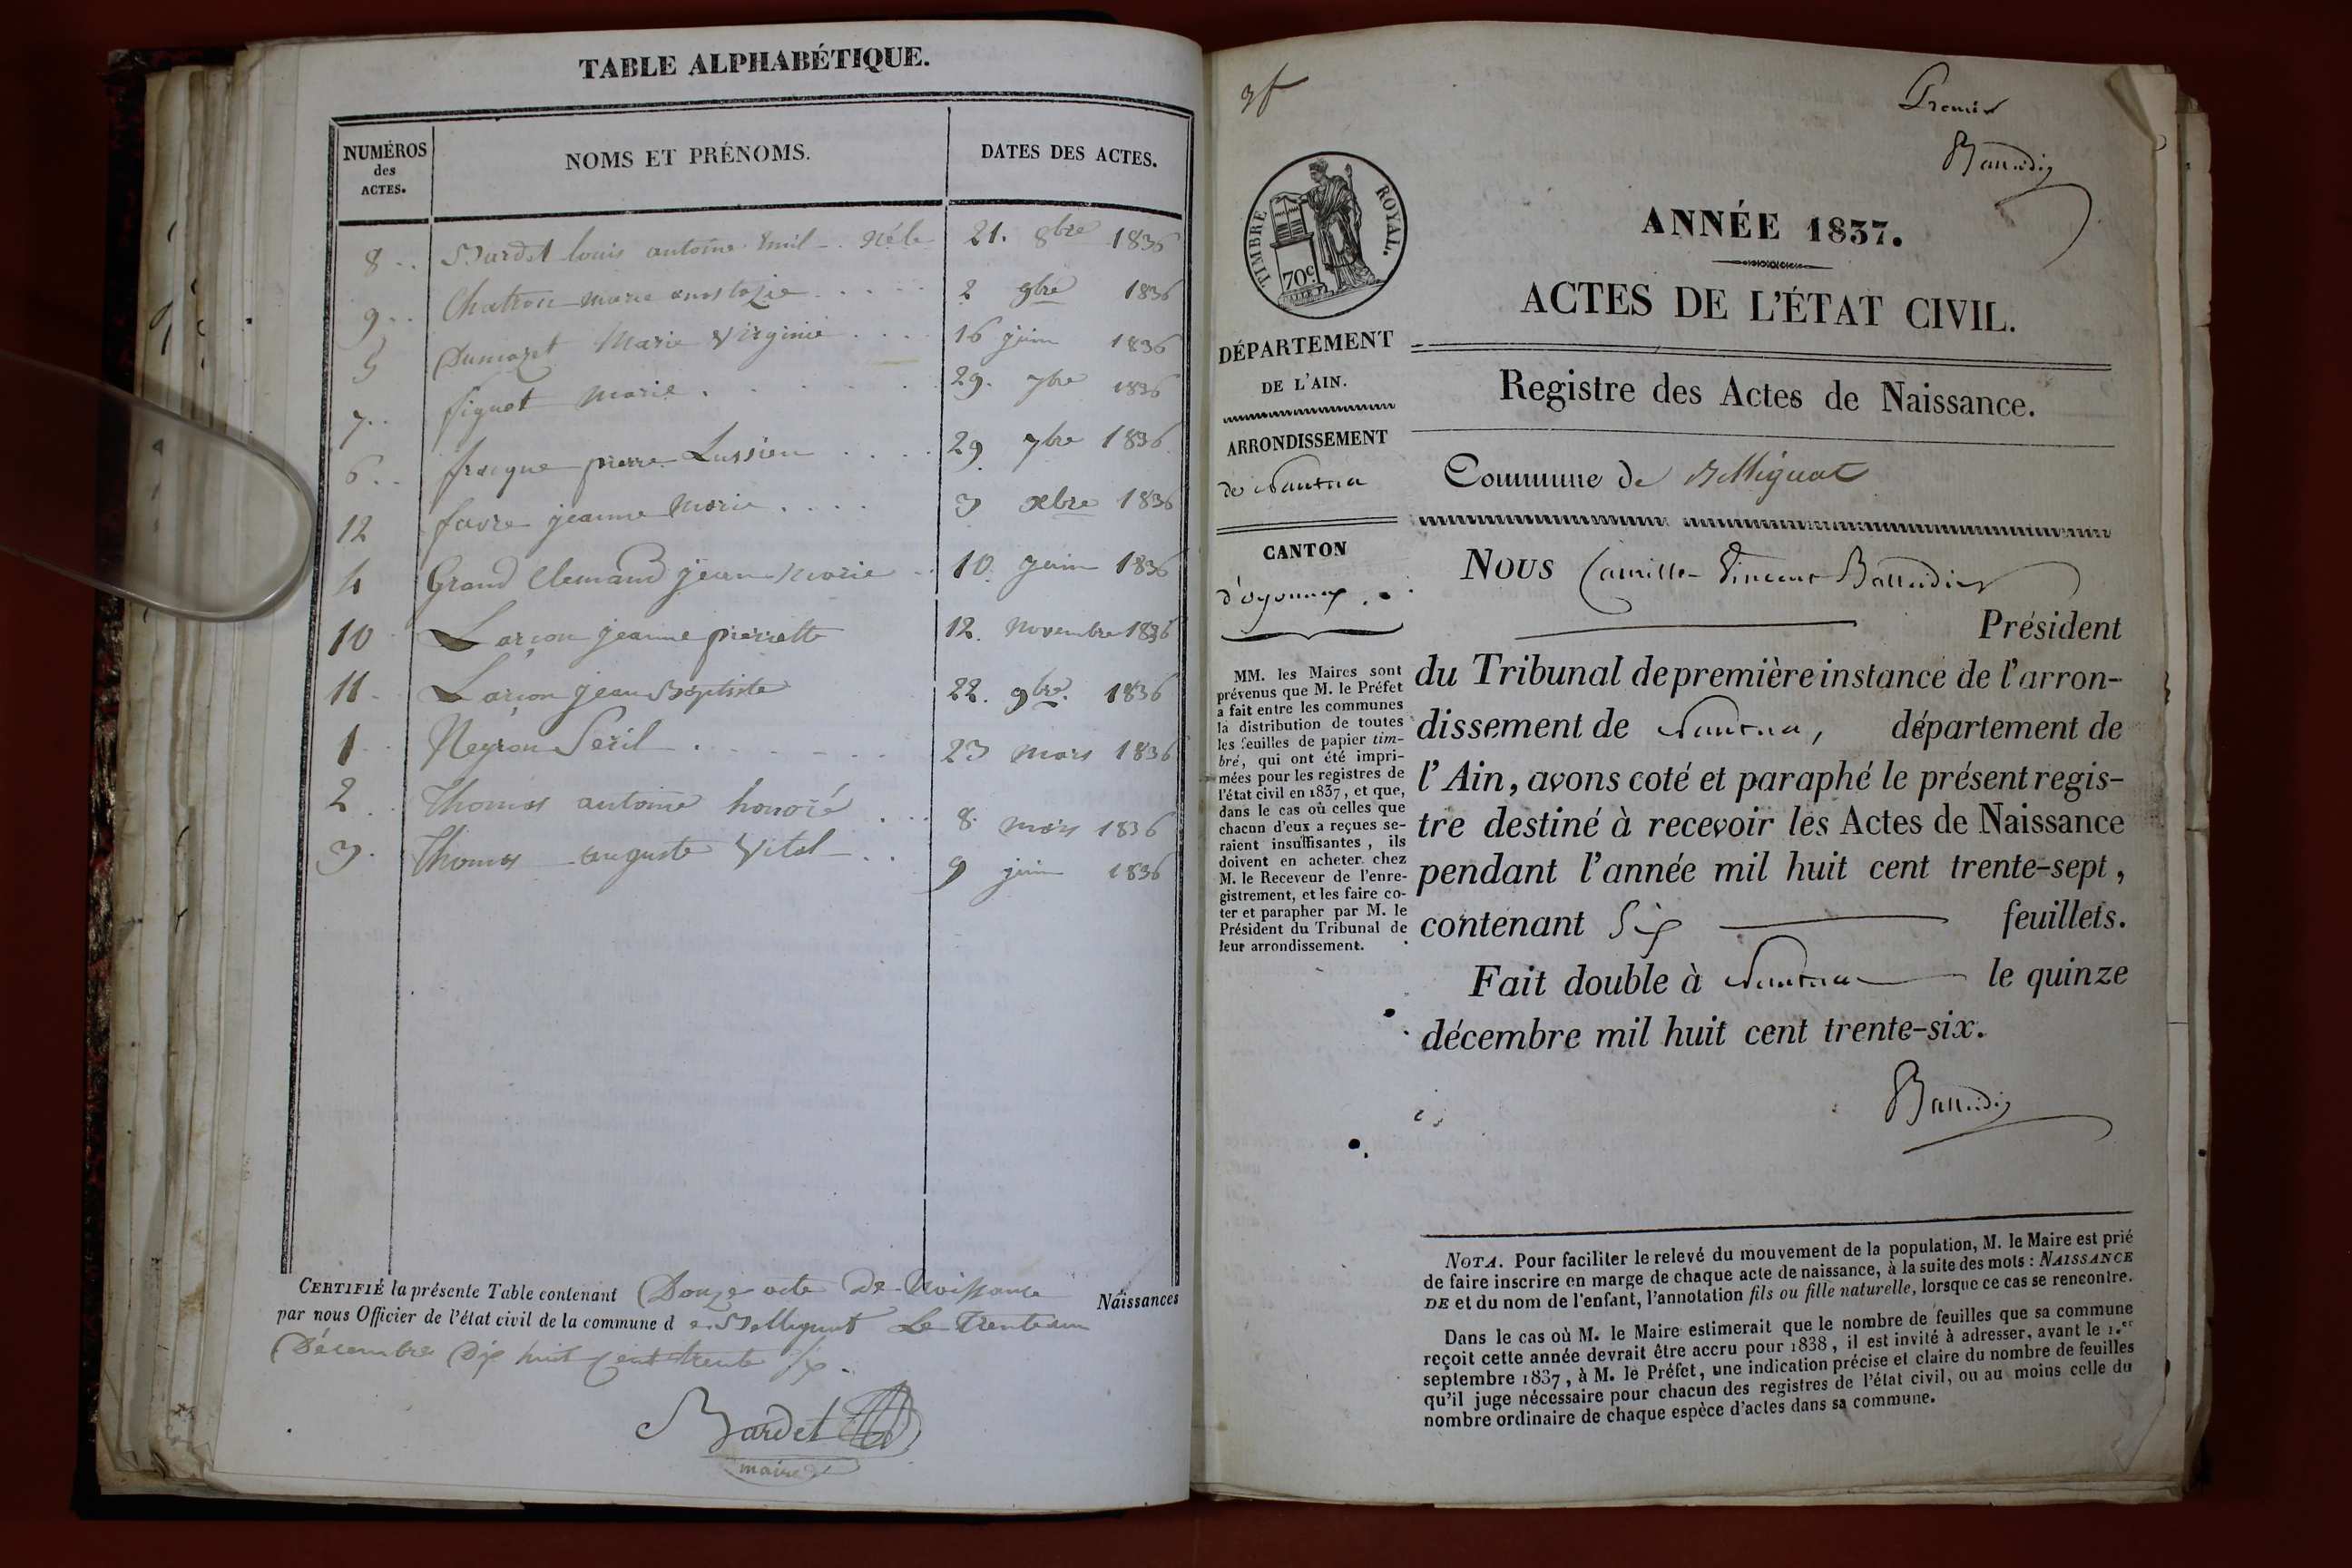 TABLE ALPHABÉTIQUE.
NUMÉROS des ACTES. NOMS ET PRÉNOMS. DATES DES ACTES.
8 .. Bardet louis antoine 21. 8bre 1836
9 .. Chatron marie anastazie ..... 2 9bre 1836
5 Dumaret Marie Virginie .... 16 juin 1836
7 .. figuet marie ....... 29. 7bre 1836
6 .. pierre Lussien .... 29 7bre 1836
12 favre jeanne Marie .... 3 xbre 1836
4 Grand Clemand jean Marie .. 10 juin 1836
10 Larçon jeanne pierrette 12. novembre 1836
11 - Larçon jean Baptiste 22. 9bre. 1836
1 .. Neyron Seril ....... 23 mars 1836
2 .. Thomas antoine honoré ... 8. mars 1836
3 . Thomas auguste Vital .. 9 juin 1836
CERTIFIÉ la présente Table contenant Douze acte De Noissance Naissances
par nous Officier de l'état civil de la commune d e Belligniat Le Trente un
Décembre Dix huit Cent trente Six.
Bardet
maire
3f
Premier
Balleidier
TIMBRE ROYAL.
70c
ANNÉE 1837.
ACTES DE L'ÉTAT CIVIL.
DÉPARTEMENT
DE L'AIN.
ARRONDISSEMENT
de Nantua
CANTON
d'oyonnax.
MM. les Maires sont
prévenus que M. le Préfet
a fait entre les communes
la distribution de toutes
les feuilles de papier tim-
bré, qui ont été impri-
mées pour les registres de
l'état civil en 1837, et que,
dans le cas où celles que
chacun d'eux a reçues se-
raient insuffisantes, ils
doivent en acheter chez
M. le Receveur de l'enre-
gistrement, et les faire co-
ter et parapher par M. le
Président du Tribunal de
leur arrondissement.
Registre des Actes de Naissance.
Commune de Belligniat
NOUS Camille Vincent Balleidier
Président
du Tribunal de première instance de l'arron-
dissement de Nantua, département de
l'Ain, avons coté et paraphé le présent regis-
tre destiné à recevoir les Actes de Naissance
pendant l'année mil huit cent trente-sept,
contenant Six feuillets.
Fait double à Nantua le quinze
décembre mil huit cent trente-six.
Balleidier
NOTA. Pour faciliter le relevé du mouvement de la population, M. le Maire est prié
de faire inscrire en marge de chaque acte de naissance, à la suite des mots : NAISSANCE
DE et du nom de l'enfant, l'annotation fils ou fille naturelle, lorsque ce cas se rencontre.
Dans le cas où M. le Maire estimerait que le nombre de feuilles que sa commune
reçoit cette année devrait être accru pour 1838, il est invité à adresser, avant le 1.er
septembre 1837, à M. le Préfet, une indication précise et claire du nombre de feuilles
qu'il juge nécessaire pour chacun des registres de l'état civil, ou au moins celle du
nombre ordinaire de chaque espèce d'actes dans sa commune.